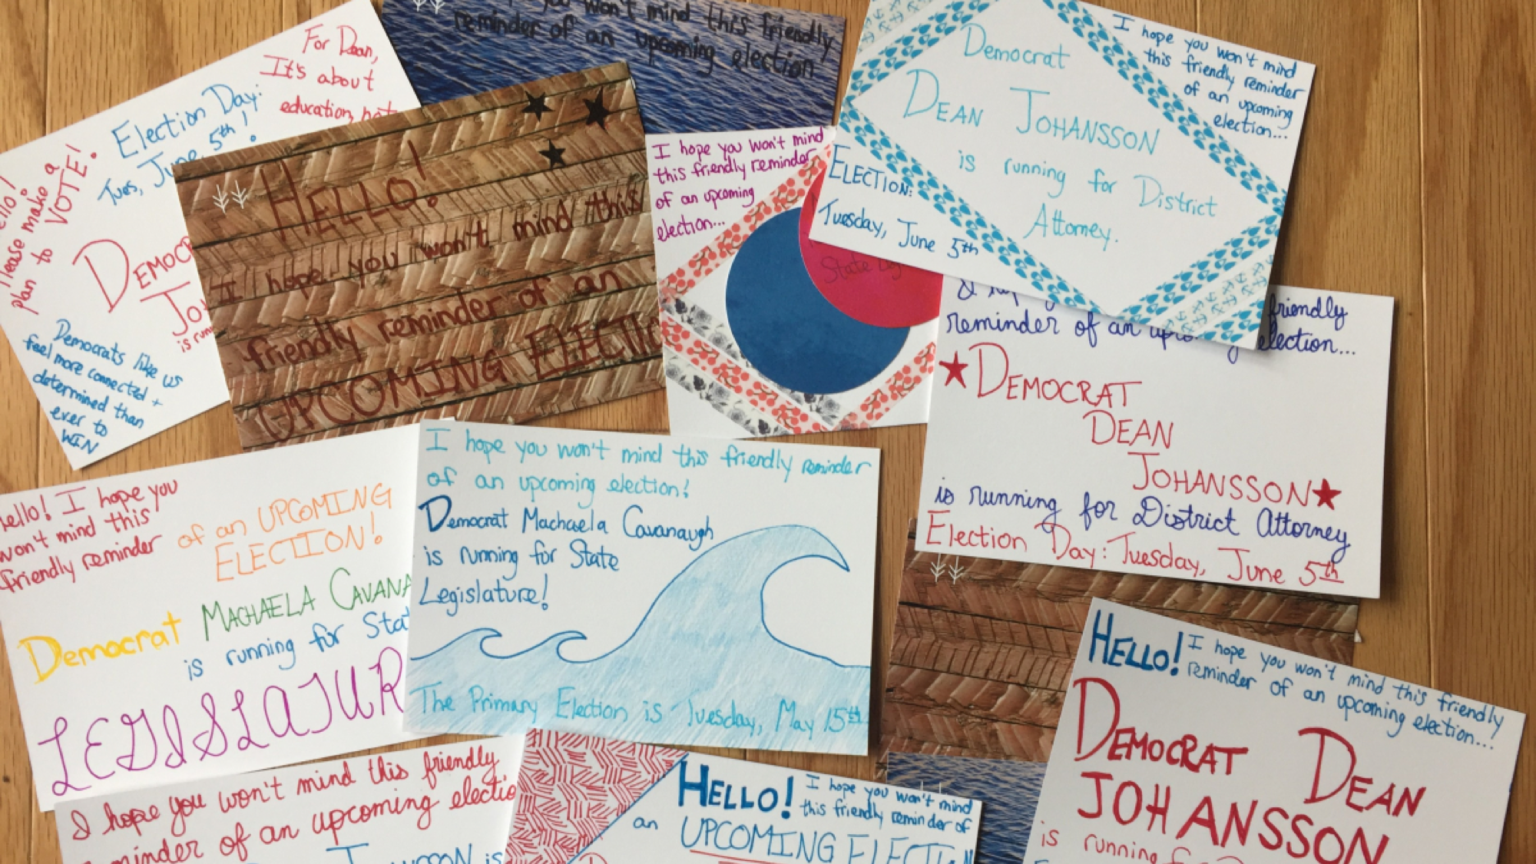 For Dean,
It's about
education, not
Election Day:
Tues, June 5th!
Please make a
plan to VOTE!
Democrats like us
feel more connected +
determined than
ever to
WIN
you won't mind this friendly
reminder of an upcoming election
HELLO!
I hope you won't mind this
friendly reminder of an
UPCOMING
I hope you won't mind
this friendly reminder
of an upcoming
election...
State
I hope you won't mind
this friendly reminder
of an upcoming
election...
Democrat
DEAN JOHANSSON
is running for District
Attorney.
ELECTION:
Tuesday, June 5th
friendly
reminder of an election...
DEMOCRAT
DEAN
JOHANSSON
is running for District Attorney
Election Day: Tuesday, June 5th
Hello! I hope you
won't mind this
friendly reminder
of an UPCOMING
ELECTION!
Democrat MACHAELA CAVANA
is running for Sta
LEGISLATUR
I hope you won't mind this friendly reminder
of an upcoming election!
Democrat Machaela Cavanaugh
is running for State
Legislature!
The Primary Election is Tuesday, May 15th
HELLO! I hope you won't mind this friendly
reminder of an upcoming election...
DEMOCRAT DEAN
JOHANSSON
is running
I hope you won't mind this friendly
minder of an upcoming electio
is
HELLO! I hope you won't mind
this friendly reminder of
an UPCOMING ELECTION